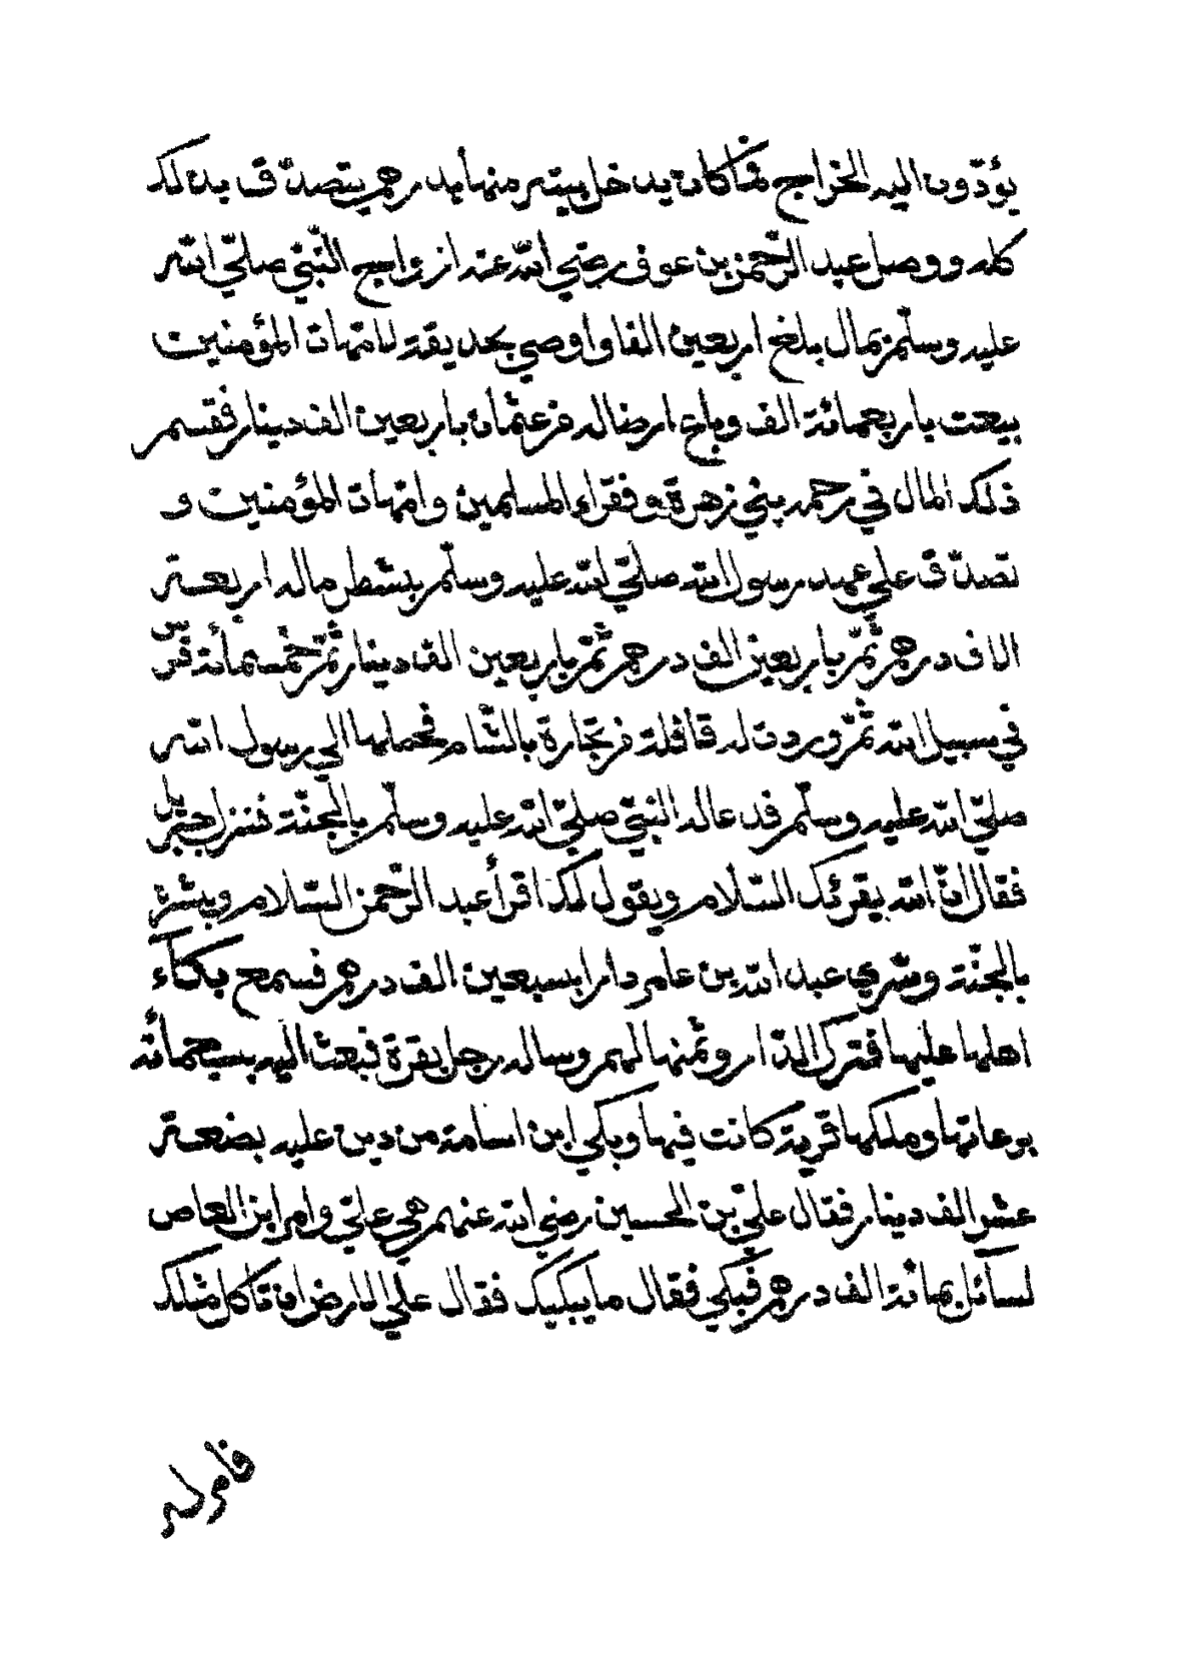 يؤدّون اليه الخراج فما كان يدخل بيته منها درهم يتصدّق بذلك
كله ووصل عبد الرّحمن بن عوف رضي الله عنه ازواج النّبيّ صلّي الله
عليه وسلّم بمال بلغ اربعين الفا واوصي بحديقة لامّهات المؤمنين
بيعت باربعمائة الف وباع ارضا له من عثمان باربعين الف دينار فقسم
ذلك المال في رحمه بني زهرة وفقراء المسلمين وامّهات المؤمنين و
تصدّق علي عهد رسول الله صلّي الله عليه وسلّم بشطر ماله اربعة
الاف درهم ثمّ باربعين الف درهم ثمّ باربعين الف دينار ثمّ خمسمائة فرس
في سبيل الله ثمّ وردت له قافلة من تجارة بالشّام فحملها الي رسول الله
صلّي الله عليه وسلّم فدعا له النبيّ صلّي الله عليه وسلّم بالجنّة فنزل جبريل
فقال انّ الله يقرئك السّلام ويقول لك اقرأ عبد الرّحمن السّلام وبشره
بالجنّة وشري عبد الله بن عامر دارا بسبعين الف درهم فسمع بكآء
اهلها عليها فترك الدّار وثمنها لهم وساله رجل بقرة فبعث اليه بسبعمائة
برعاتها وملكها قرية كانت فيها وبكي ابن اسامة من دين عليه بضعة
عشر الف دينار فقال عليّ بن الحسين رضي الله عنهم هي عليّ وامر ابن العاص
لسآئل بمائة الف درهم فبكي فقال ما يبكيك فقال علي الارض ان تاكل مثلك
فامر له